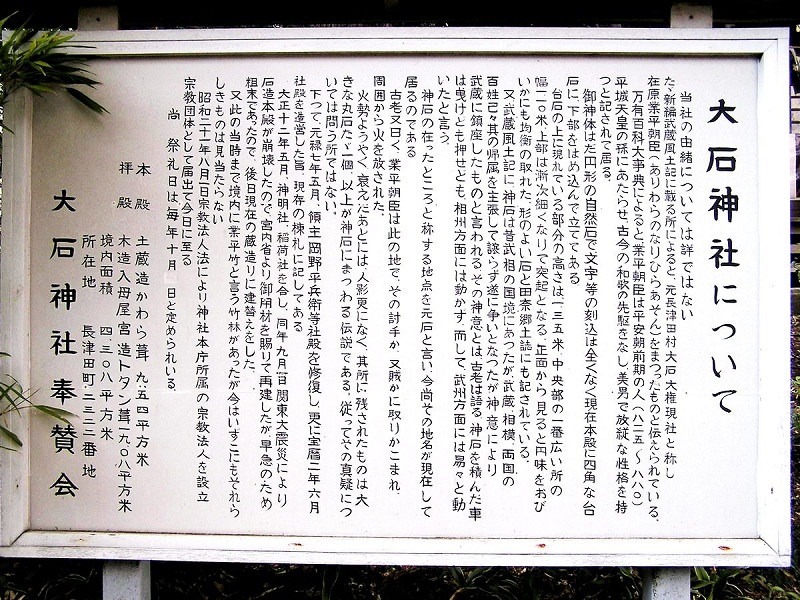 大石神社について
当社の由緒については詳ではない
たゞ新編武蔵風土記に載る所によると、元長津田村大石大権現社と称し
在原業平朝臣(ありわらのなりひらあそん)をまつったものと伝えられている。
万有百科大事典によると業平朝臣は平安朝前期の人(八二五～八八〇)
平城天皇の孫にあたらせ、古今の和歌の先駆をなし、美男で放縦な性格を持
つと記されて居る。
御神体はだ円形の自然石で文字等の刻込は全くなく現在本殿に四角な台
石に、下部をはめ込んで立てゝある
台石の上に現れている部分の高さは一三五米、中央部の一番広い所の
幅一一〇米上部は漸次細くなりて突起となる、正面から見ると円味をおび
いかにも均衡の取れた、形のよい石と田奈郷土誌にも記されている。
又武蔵風土記に神石は昔武相の国境にあったが武蔵、相模、両国の
百姓己々其の帰属を主張して譲らず遂に争いとなったが神意により
武蔵に鎮座したものと言われる。その神意とは古老は語る、神石を積んだ車
は曳けども押せども、相州方面には動かず、而して、武州方面には易々と動
いたと言う
神石の在ったところと称する地点を元石と言い、今尚その地名が現在して
居るのである
古老又曰く、業平朝臣は此の地で、その討手か、又賊かに取りかこまれ、
周囲から火を放された。
火勢ようやく、衰えたあとには、人影更になく、其所に残されたものは大
きな丸石たゞ一個、以上が神石にまつわる伝説である、従ってその真疑につ
いては問う所ではない、
下って、元禄七年五月、領主岡野平兵衛等社殿を修復し、更に宝暦二年六月
社殿を造営した旨、現存の棟札に記してある
大正十二年五月、神明社、稲荷社を合し、同年九月一日関東大震災により
石造本殿が崩壊したので、宮内省より御用材を賜りて再建したが早急のため
粗末であったので、後日現在の蔵造りに建替えをした。
又此の当時まで境内に業平竹と言う竹林があったが今はいずこにもそれら
しきものは見当たらない
昭和二十一年八月一日宗教法人法により神社本庁所属の宗教法人を設立
宗教団体として届出で今日に至る
尚 祭礼日は、毎年十月一日と定められいる。
本殿 土蔵造かわら葺 九.五四平方米
拝殿 木造入母屋宮造トタン葺一九.〇八平方米
境内面積 四、三〇八平方米
所在地 長津田町二三二三番地
大石神社奉賛会